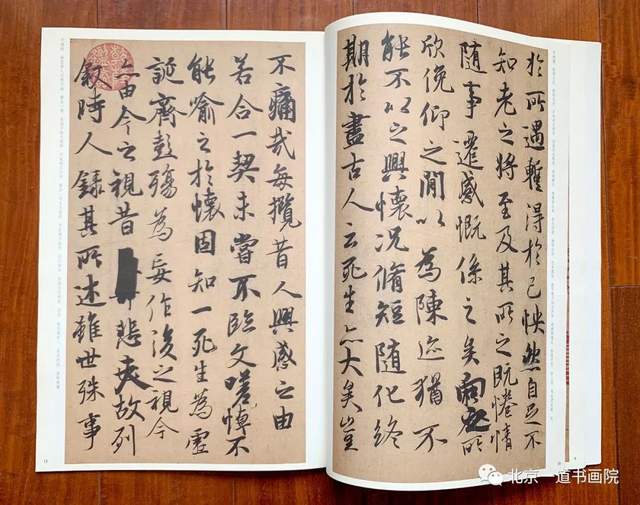 於所遇暫得於己怏然自足不
知老之將至及其所之既惓情
隨事遷感慨係之矣向之所
欣俛仰之閒以為陳迹猶不
能不以之興懷況脩短隨化終
期於盡古人云死生亦大矣豈
不痛哉每攬昔人興感之由
若合一契未嘗不臨文嗟悼不
能喻之於懷固知一死生為虛
誕齊彭殤為妄作後之視今
亦由今之視昔 悲夫故列
敘時人錄其所述雖世殊事
北京一道书画院